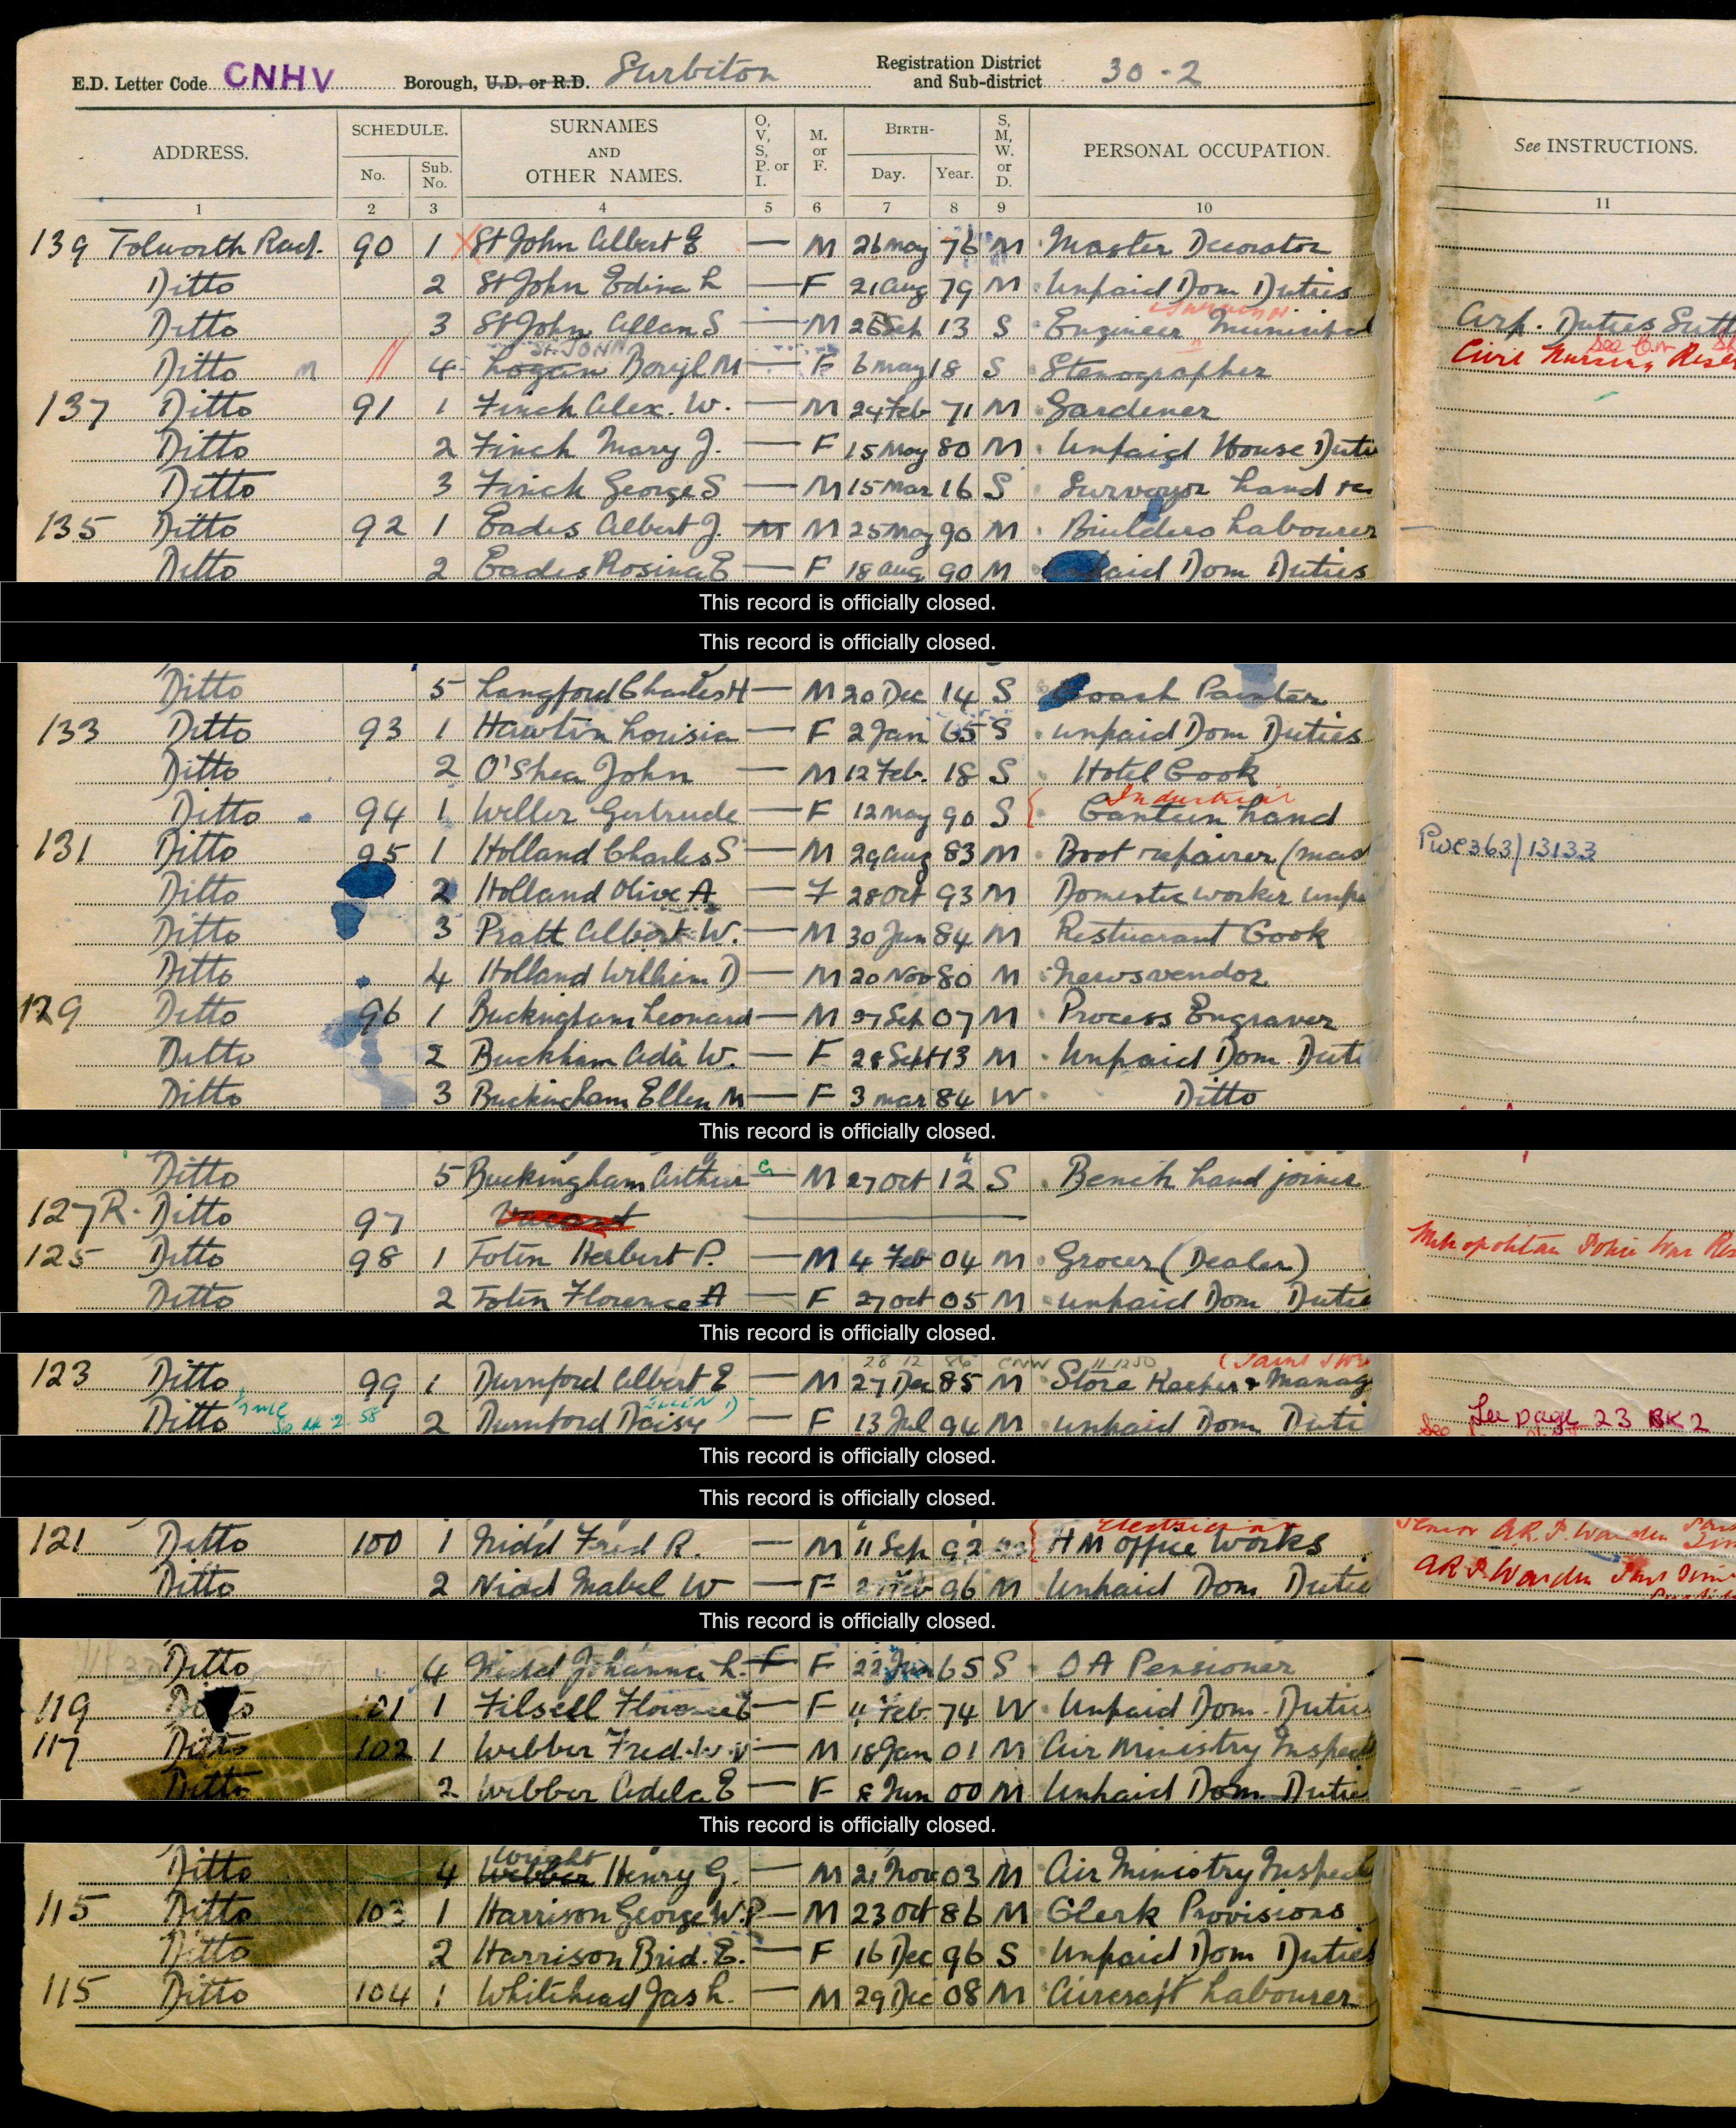 E.D. Letter Code CNHV Borough, U.D. or R.D. Surbiton Registration District and Sub-district 30-2
ADDRESS. SCHEDULE. No. Sub. No. SURNAMES AND OTHER NAMES. O, V, S, P. or I. M. or F. BIRTH- Day. Year. S, M, W. or D. PERSONAL OCCUPATION. See INSTRUCTIONS.
1 2 3 4 5 6 7 8 9 10 11
139 Tolworth Road. 90 1 St John Albert E — M 26 May 76 M Master Decorator
Ditto 2 St John Edina L — F 21 Aug 79 M Unpaid Dom Duties
Ditto 3 St John Allan S — M 26 Sep 13 S Engineer Municipal Arp. Duties Sutt
St. JOHN
Ditto m 4 Logan Beryl M — F 6 May 18 S Stenographer Civil Nursing Rese
137 Ditto 91 1 Finch Alex. W. — M 24 Feb 71 M Gardener
Ditto 2 Finch Mary J. — F 15 May 80 M Unpaid House Dutie
Ditto 3 Finch George S — M 15 Mar 16 S Surveyor Land
135 Ditto 92 1 Eades Albert J. M M 25 May 90 M Builders Labourer
Ditto 2 Eades Rosina E — F 18 Aug 90 M paid Dom Duties
This record is officially closed.
This record is officially closed.
Ditto 5 Langford Charles H — M 20 Dec 14 S Coach Painter
133 Ditto 93 1 Hawtin Louisia — F 2 Jan 65 S unpaid Dom Duties
Ditto 2 O'Shea John — M 12 Feb. 18 S Hotel Cook
Industrial
Ditto 94 1 Weller Gertrude — F 12 May 90 S Canteen Hand
131 Ditto 95 1 Holland Charles S — M 29 Aug 83 M Boot repairer (mas PWC363/13133
Ditto 2 Holland Olive A — F 28 Oct 93 M Domestic worker unpa
Ditto 3 Pratt Albert W. — M 30 Jun 84 M Restuarant Cook
Ditto 4 Holland William D — M 20 Nov 80 M Newsvendor
129 Ditto 96 1 Buckingham Leonard — M 27 Sep 07 M Process Engraver
Ditto 2 Buckham Ada W. — F 28 Sept 13 M Unpaid Dom Duti
Ditto 3 Buckingham Ellen M — F 3 Mar 84 W Ditto
This record is officially closed.
Ditto 5 Buckingham Arthur G. — M 27 Oct 12 S Bench hand joiner
127 R. Ditto 97 Vacant
125 Ditto 98 1 Foten Herbert P. — M 4 Feb 04 M Grocer (Dealer) Metropolitan Police War Res
Ditto 2 Foten Florence A — F 27 Oct 05 M unpaid Dom Dutie
This record is officially closed.
28 12 86 CNW
123 Ditto 99 1 Durnford Albert E — M 27 Dec 85 M Store Keeper & Manag
ELLEN D
Ditto 2 Durnford Daisy — F 13 Jul 94 M unpaid Dom Duti See page 23 BK 2
This record is officially closed.
This record is officially closed.
Electrician
121 Ditto 100 1 Nidd Fred R. — M 11 Sep 92 HM office Works Senior A.R.P. Warden
Ditto 2 Nidd Mabel W — F Feb 96 M Unpaid Dom Dutie ARP Warden
This record is officially closed.
Ditto 4 Nidd Johanna L. F F 22 Jun 65 S O A Pensioner
119 Ditto 101 1 Filsell Florence E — F 4 Feb 74 W Unpaid Dom. Dutie
117 Ditto 102 1 Webber Fred. — M 18 Jan 01 M Air Ministry Inspect
Ditto 2 Webber Adela E — F 8 Jun 00 M Unpaid Dom Dutie
This record is officially closed.
Wright
Ditto 4 Webber Henry G. — M 21 Nov 03 M Air Ministry Inspec
115 Ditto 103 1 Harrison George W.P — M 23 Oct 86 M Clerk Provisions
Ditto 2 Harrison Brid. E. — F 16 Dec 96 S Unpaid Dom Duties
115 Ditto 104 1 Whitehead Jas L. — M 29 Dec 08 M Aircraft Labourer